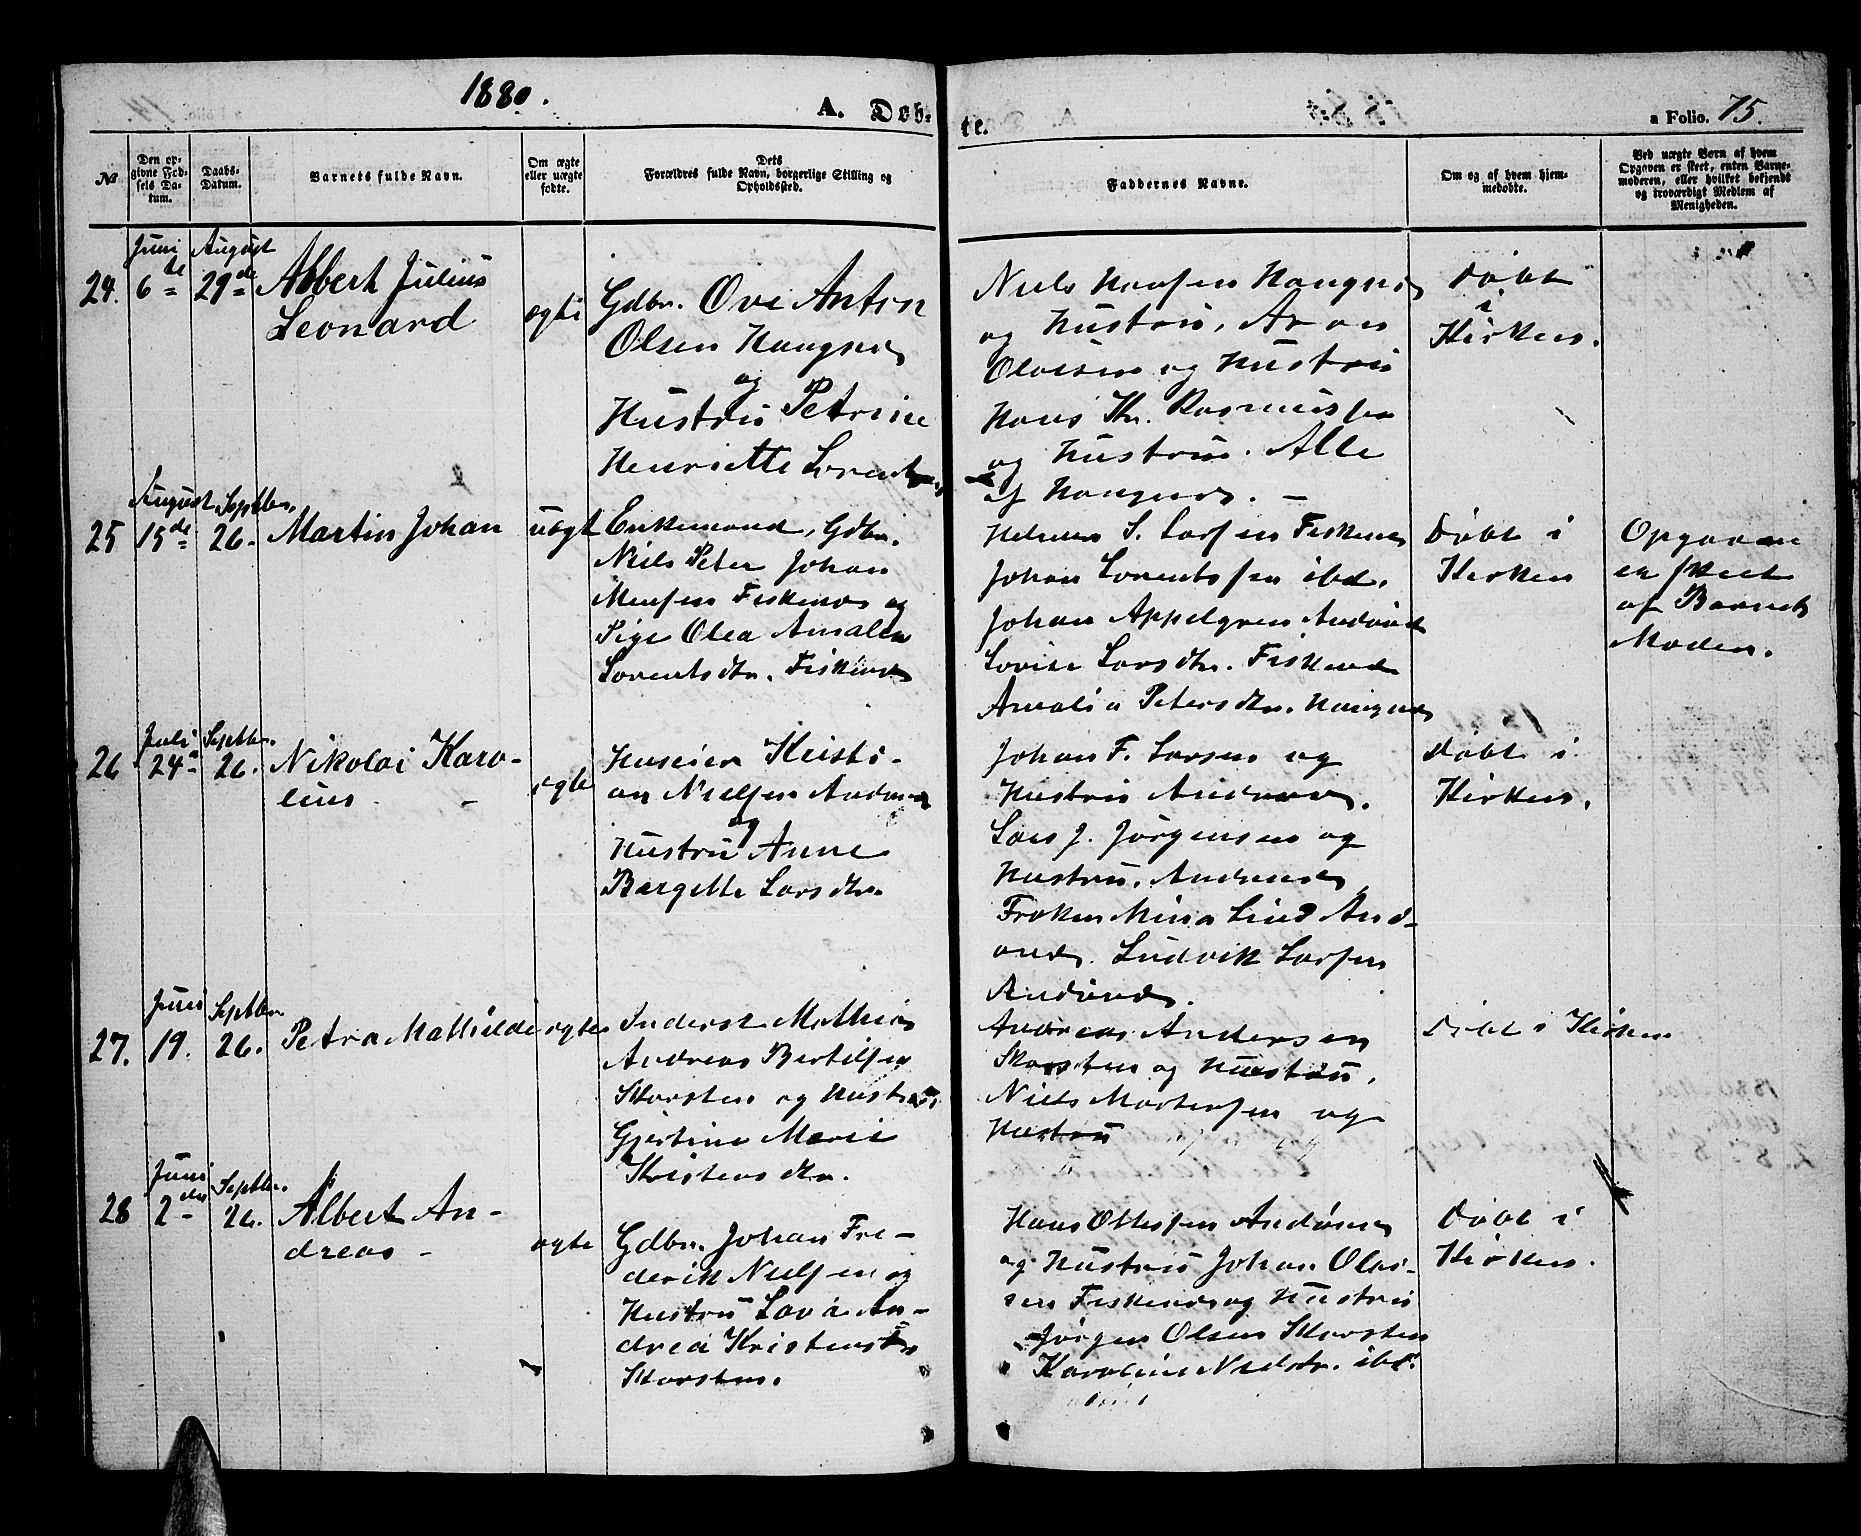 1880.
A. Døb-
te.
a Folio. 75.
№
Den op-
givne Fød-
sels Da-
tum.
Daabs-
Datum.
Barnets fulde Navn.
Om ægte
eller uægte
fødte.
Dets
Forældres fulde Navn, borgerlige Stilling og
Opholdssted.
Faddernes Navne.
Om og af hvem hjem-
medøbte.
Ved uægte Børn af hvem
Opgaven er skeet, enten Barne-
moderen, eller hvilket bekjendt
og troværdigt Medlem af
Menigheden.
24.
Juni
6te
August
29de
Albert Julius
Leonard
ægte
Gdbr. Ove Anton
Olsen Haugnes
og
Hustru Petrine
Henriette Lorents
Niels Hansen Haugnes
og Hustru, Aron
Olaisen og Hustru
Hans Kr. Rasmussen
og Hustru. Alle
af Haugnes. –
Døbt
i
Kirken.
25
August
15de
Septbr.
26.
Martin Johan
uægt
Enkemand, Gdbr.
Niels Peter Johan
Fiskenes og
Pige Olea Amalia
Lorentsdtr. Fiskenes
S. Larsen Fiskenes
Johan Lorentssen ibd.
Johan Appelgren Andenes
Lovise Larsdtr. Fiskenes
Amalia Petersdtr. Haugnes
Døbt i
Kirken
Opgaven
er skeet
af Barnets
Moder.
26
Juli
24
Septbr.
26.
Nikolai Karo-
lius –
ægte
Huseier Kristi-
an Nielsen Andenes
og
Hustru Anne
Bergette Larsdtr.
Johan F. Larsen og
Hustru Andenes.
Lars J. Jörgensen og
Hustru, Andenes
Frøken Mina Lind And-
enes. Ludvik Larsen
Andenes.
Døbt i
Kirken.
27.
Juni
19.
Septbr
26.
Petra Mathilde
ægte
Inderst Mathias
Andreas Bertilsen
Skarsten og Hustru
Gjertine Marie
Kristensdtr.
Andreas Andersen
Skarsten og Hustru,
Niels Mortensen og
Hustru
Døbt i Kirken
28
Juni
2den
Septbr.
26.
Albert An-
dreas –
ægte
Gdbr. Johan Fre-
derik Nielsen og
Hustru Lovi An-
drea Kristensdtr
Skarsten.
Hans Ottesen Andenes
og Hustru Johan Olai-
sen Fiskenes og Hustru
Jörgen Olsen Skarsten
Karoline Nielsdtr. ibd.
Døbt i
Kirken.